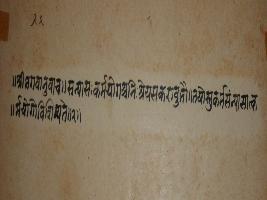 २६
॥श्रीभगवानुवाच॥सन्यासः कर्मयोगश्चनिःश्रेयसकरावुभौ॥तयोस्तुकर्मसंन्यासात्क
र्मयोगोविशिष्यते॥२॥